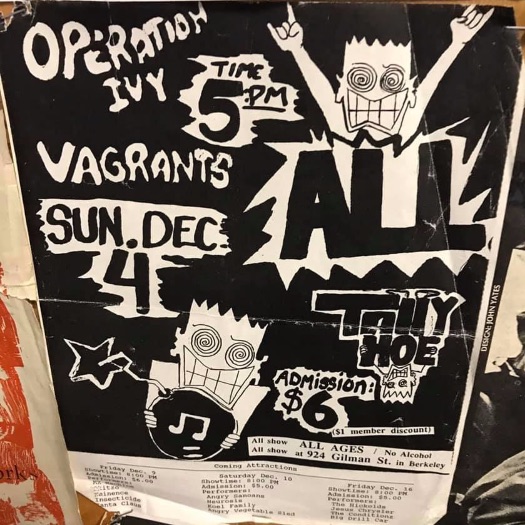 OPERATION
IVY
TIME
5 PM
VAGRANTS
ALL
SUN. DEC.
4
TALLY
HOE
ADMISSION:
$6
($1 member discount)
All show ALL AGES / No Alcohol
All show at 924 Gilman St. in Berkeley
DESIGN: JOHN YATES
Coming Attractions
Friday Dec. 9
Showtime: 8:00 PM
Eminence
Insecticide
Santa Claus
Saturday Dec. 10
Showtime: 8:00 PM
Admission: $5.00
Performers:
Angry Samoans
Neurosis
Angry Vegetable
Friday Dec. 16
Showtime: 8:00 PM
Admission: $5.00
Performers:
Jesus Chrysler
The Conditionz
Big Drill Car